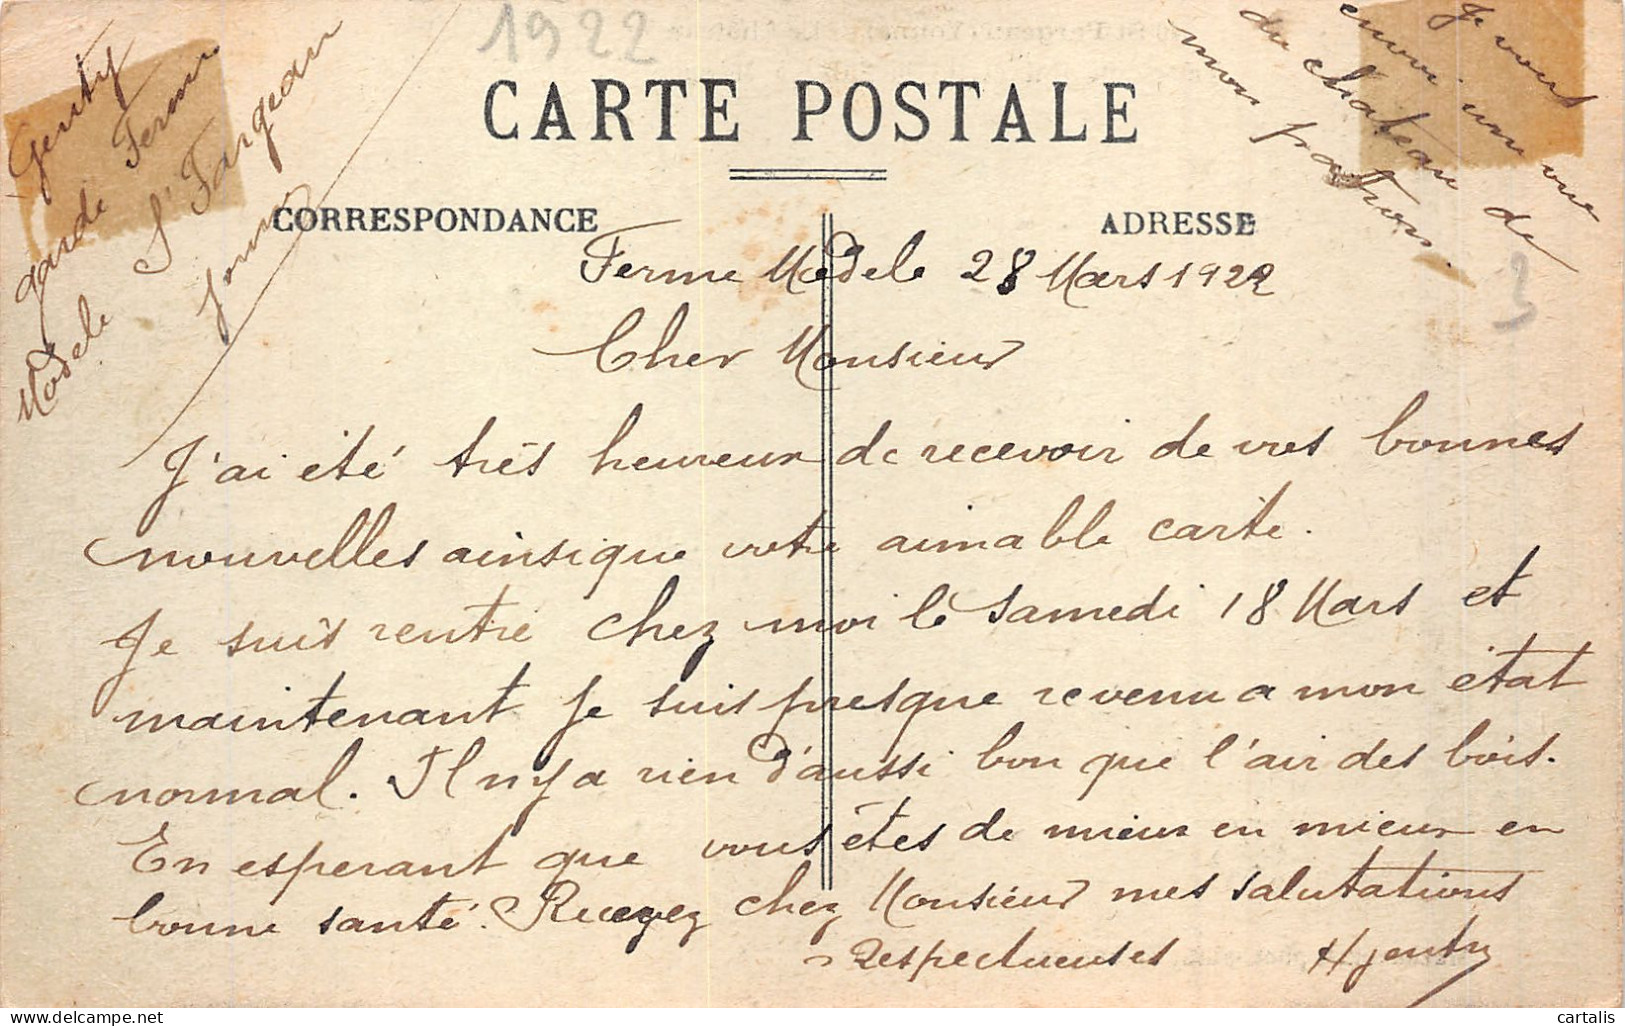 1922
CARTE POSTALE
CORRESPONDANCE
ADRESSE
Genty
garde Ferme
Modele St Fargeau
Yonne
Je vous
envoi une vue
du chateau de
mon patron.
3
Ferme Modele 28 Mars 1922
Cher Monsieur
J'ai été très heureux de recevoir de vos bonnes
nouvelles ainsi que votre aimable carte.
Je suis rentré chez moi le samedi 18 Mars et
maintenant je suis presque revenu a mon état
normal. Il n'y a rien d'aussi bon que l'air des bois.
En esperant que vous êtes de mieux en mieux en
bonne santé. Recevez cher Monsieur mes salutations
Respectueuses H Genty
cartalis